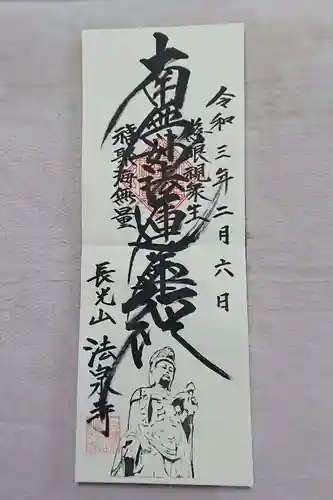 令和三年二月六日
慈眼視衆生
南無妙法蓮華経
福聚海無量
長光山
法泉寺